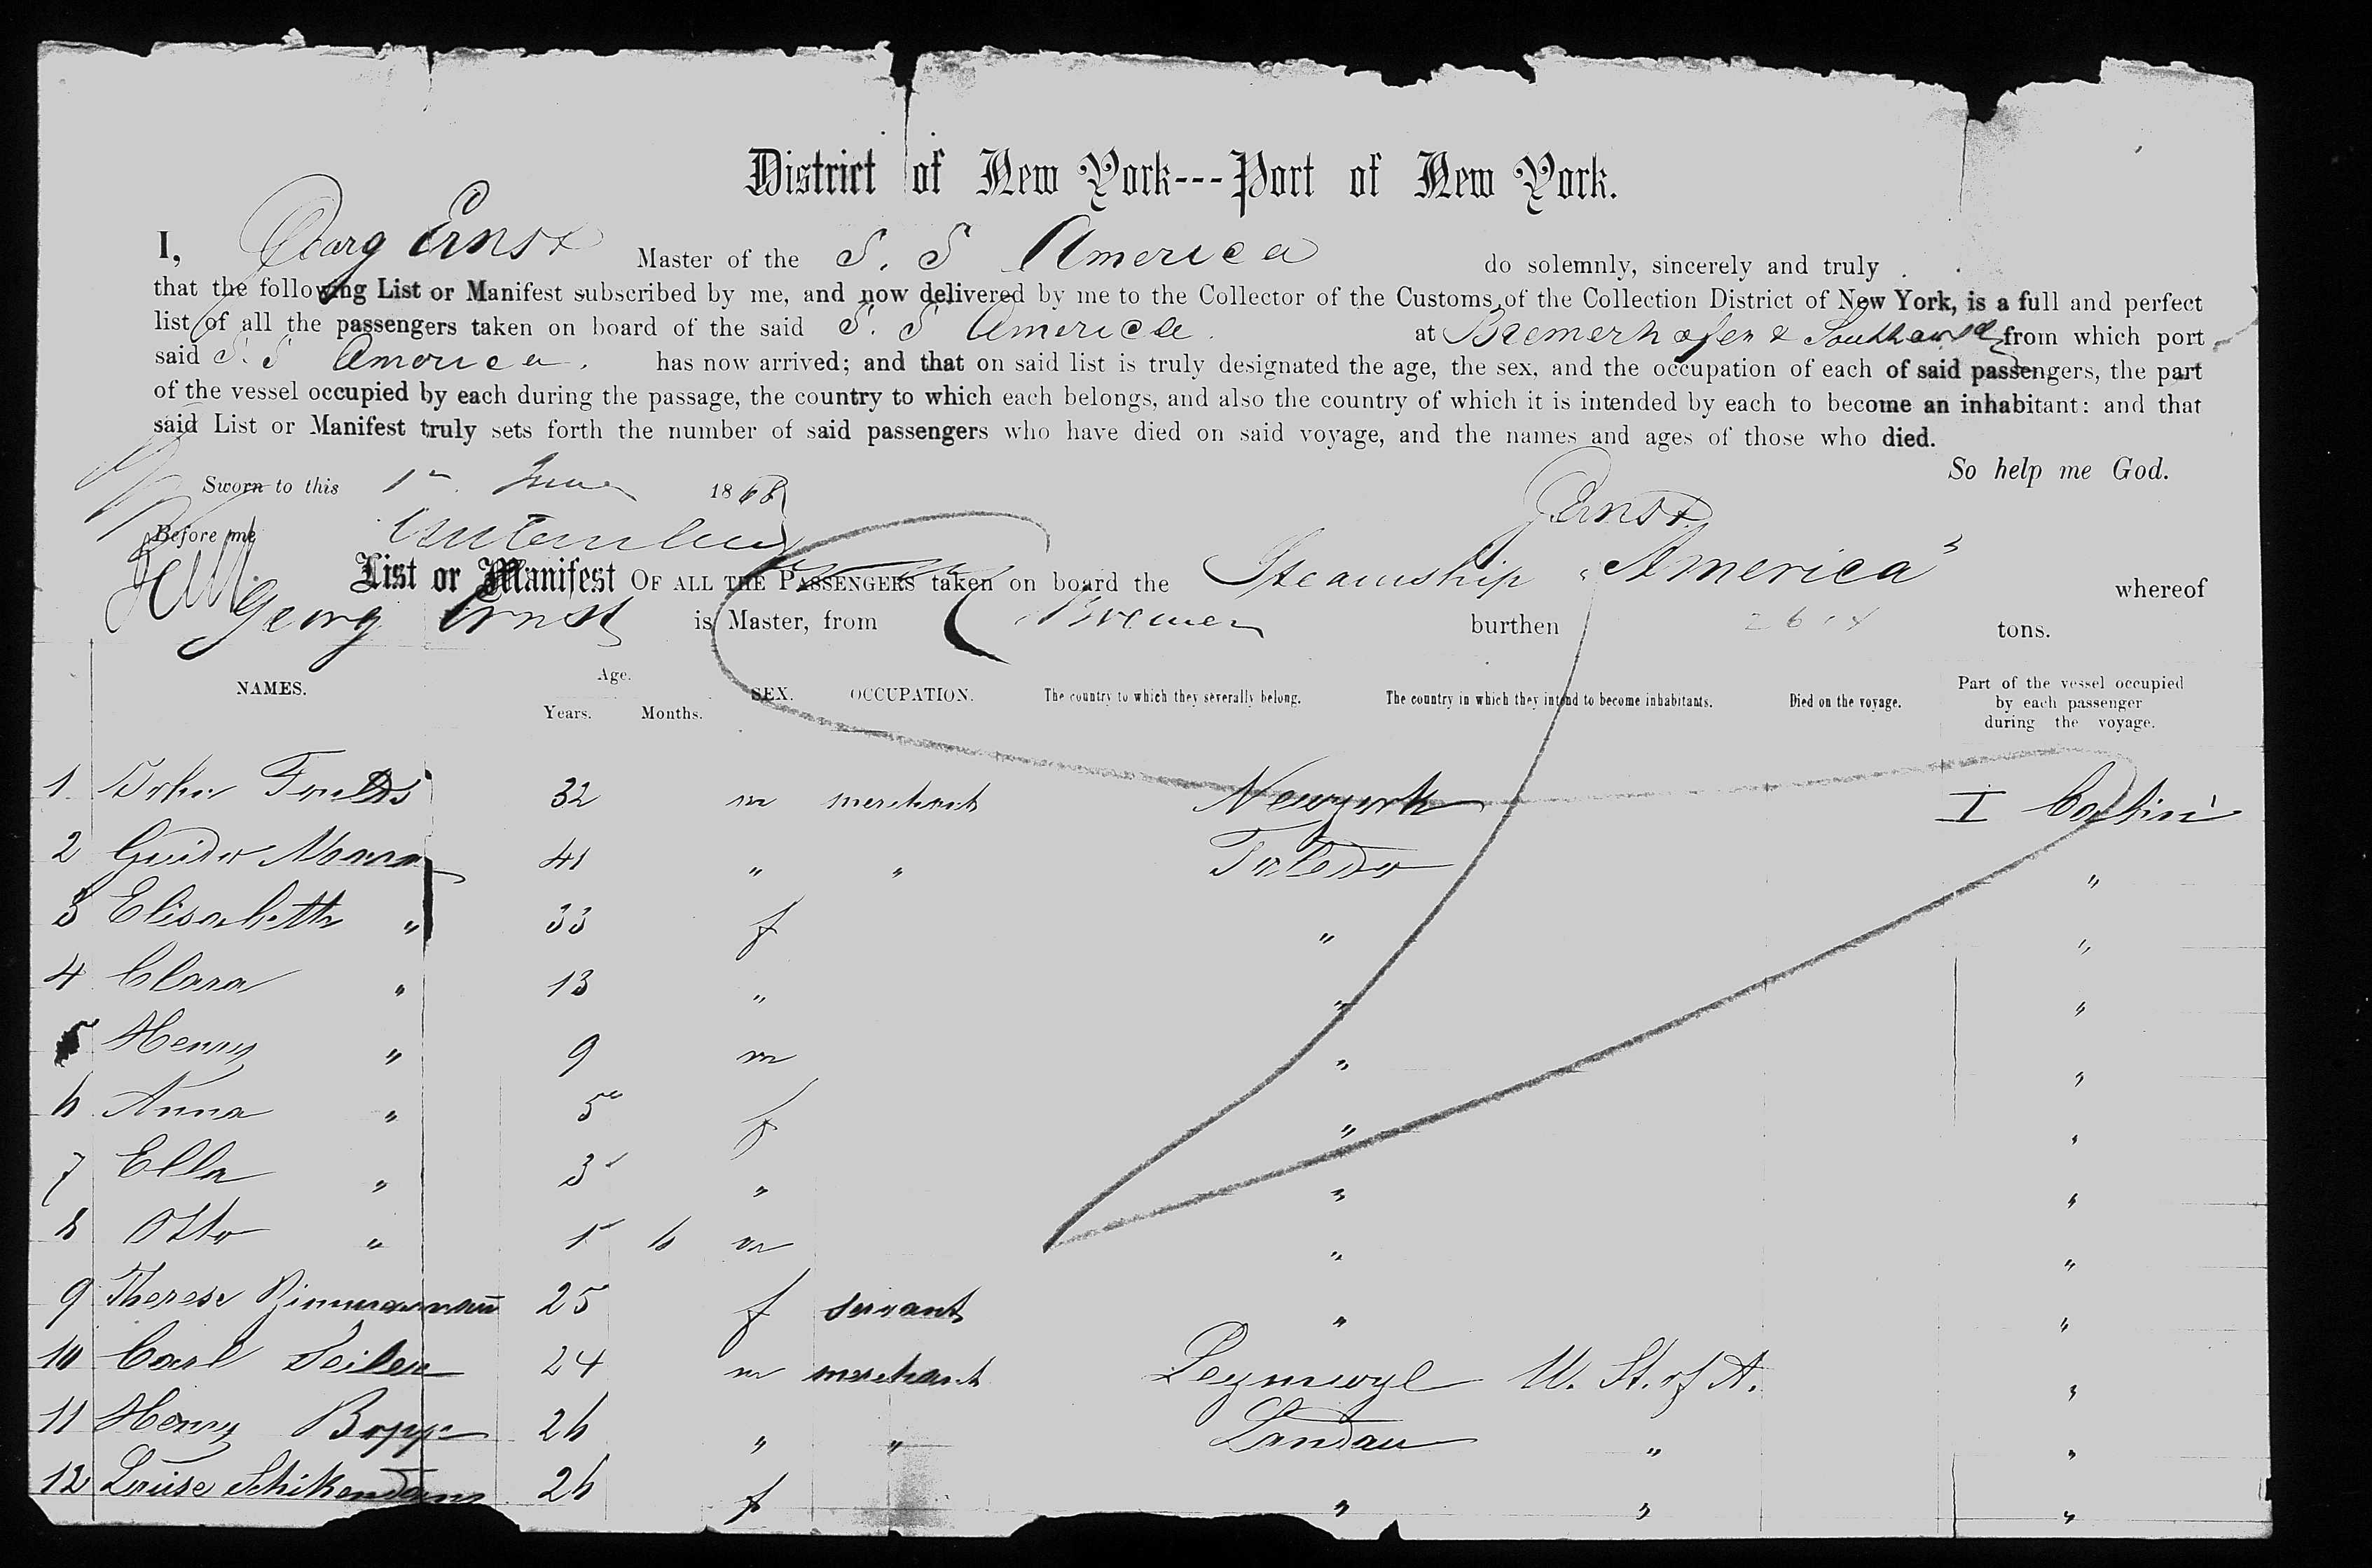 District of New York---Port of New York.
I, Georg Ernst Master of the S. S America do solemnly, sincerely and truly
that the following List or Manifest subscribed by me, and now delivered by me to the Collector of the Customs of the Collection District of New York, is a full and perfect
list of all the passengers taken on board of the said S. S America. at Bremerhafen & from which port
said S. S America. has now arrived; and that on said list is truly designated the age, the sex, and the occupation of each of said passengers, the part
of the vessel occupied by each during the passage, the country to which each belongs, and also the country of which it is intended by each to become an inhabitant: and that
said List or Manifest truly sets forth the number of said passengers who have died on said voyage, and the names and ages of those who died.
So help me God.
Sworn to this 1 June 1868
GErnst
Before me
List or Manifest OF ALL THE PASSENGERS taken on board the Steamship "America" whereof
Georg Ernst is Master, from Bremen burthen tons.
NAMES. Age. Years. Months. SEX. OCCUPATION. The country to which they severally belong. The country in which they intend to become inhabitants. Died on the voyage. Part of the vessel occupied by each passenger during the voyage.
1 John 32 m merchant Newyork I Cajüte
2 Guido Marx 41 " " Toledo "
3 Elisabeth " 33 f " "
4 Clara " 13 " " "
5 Henry " 9 m " "
6 Anna " 5 f " "
7 Ella " 3 " " "
8 Otto " 1 6 m " "
9 Therese Zimmermann 25 f servant " "
10 Carl Seiler 24 m merchant U. St. of A. "
11 Henry Bopp 26 " " Landau " "
12 Louise 26 f " " "